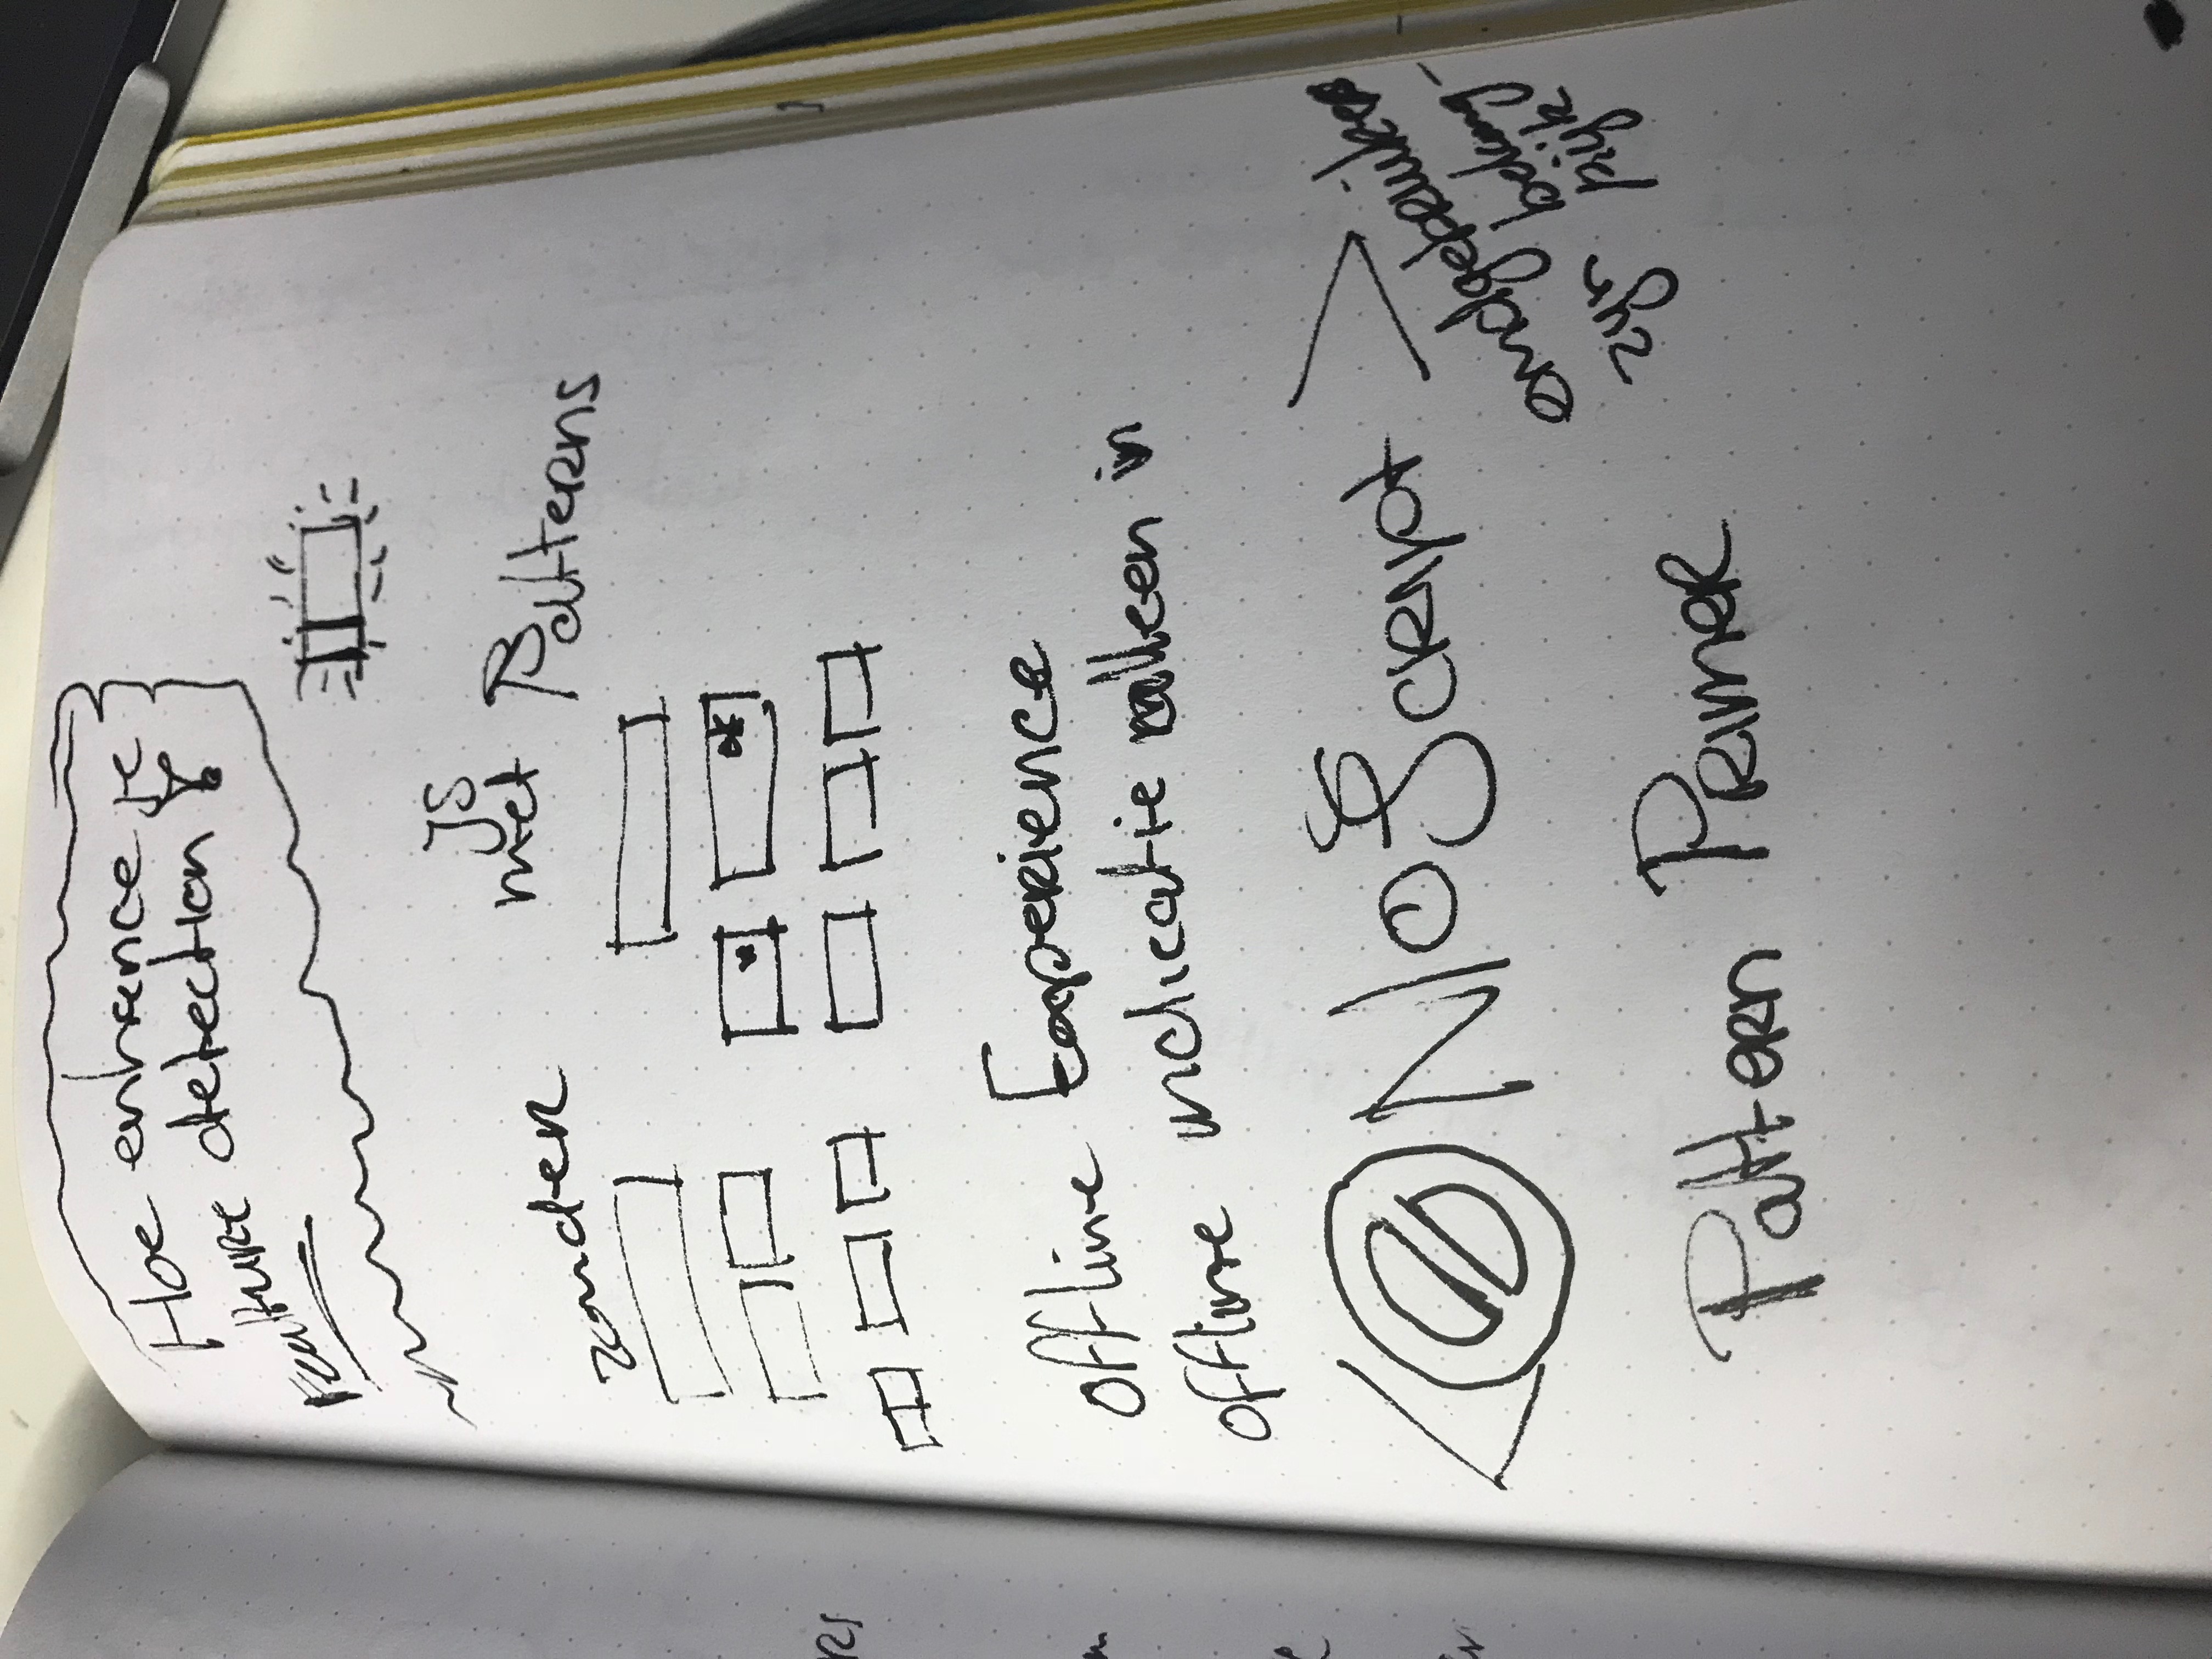 Hoe enhance je
Feature detection ?
JS
zonder met Patterns
ok
offline Experience
offline indicatie alleen in
< NoScript >
eindgebruikers
zijn belang-
rijk
Pattern Primer